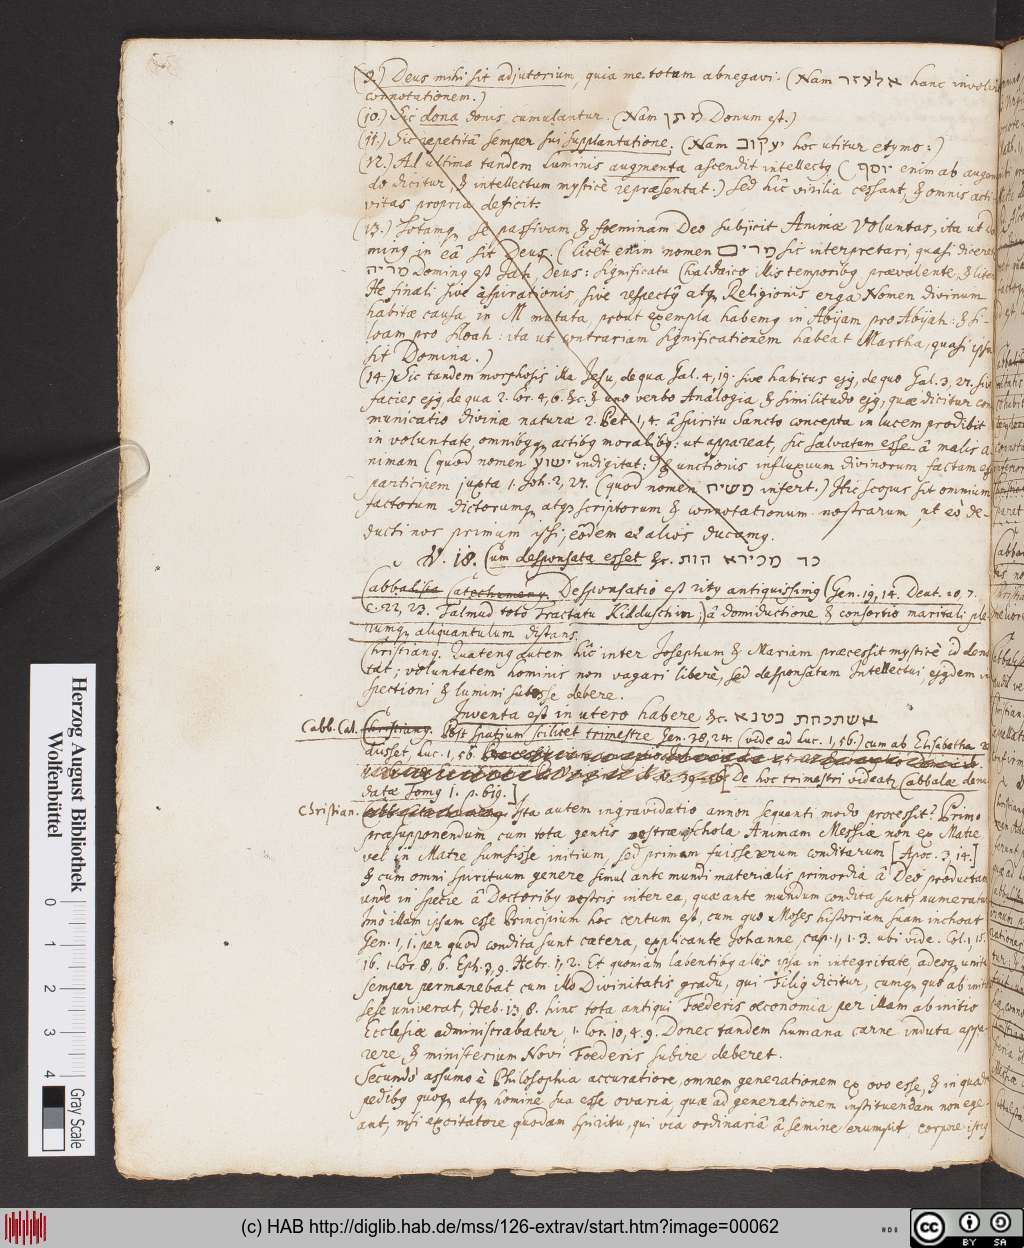 (9.) Deus mihi sit adjutorium, quia me totum abnegavi. (Nam אלעזר hanc involvit
connotationem.)
(10.) Sic dona donis cumulantur. (Nam מתן Donum est.)
(11.) Sic repetitâ semper sui supplantatione. (Nam יעקוב hoc utitur etymo:)
(12.) Al ultima tandem luminis augmenta ascendit intellectq (יוסף enim ab augen
do dicitur, & intellectum mysticè repræsentat.) Sed hîc virilia cessant, & omnis acti
vitas propria deficit.
(13.) Totamq se passivam & foeminam Deo subjicit Animæ Voluntas, ita ut Do
minq in eâ sit Deus. (Licèt enim nomen מרים sic interpretari, quasi diceret
מריה Dominq est Jah, Deus: significatu Chaldaico illis temporibq prævalente, & litera
He finali sive aspirationis sive respectq atq Religionis erga Nomen divinum
habitæ causa in M mutata, prout exempla habemq in Abijam pro Abijah: & Si-
loam pro Sloah: ita ut contrariam significationem habeat Martha, quasi ipsa
sit Domina.)
(14.) Sic tandem morphosis illa Jesu, de qua Gal. 4, 19. sive habitus ejq, de quo Gal. 3, 27. sive
facies ejq de qua 2. Cor. 4, 6. &c. & uno verbo Analogia & similitudo ejq, quæ dicitur com
municatio divinæ naturæ 2. Pet. 1, 4. â Spiritu Sancto concepta in lucem prodibit
in voluntate, omnibqq actibq moralibq: ut appareat, sic salvatum esse â malis a
nimam (quod nomen ישוע indigitat:) & unctionis influxuum divinorum factam esse
participem juxta 1. Joh. 2, 27. (quod nomen משיח infert.) Hic scopus sit omnium
factorum dictorumq atq scriptorum & connotationum nostrarum, ut eò de-
ducti nos primum ipsi, eòdem et alios ducamq.
V. 18. Cum desponsata esset &c. כד מכירא הות
Cabbalista Catechumenq. Desponsatio est ritq antiquissimq (Gen. 19, 14. Deut. 20, 7.
c. 22, 23. Talmud toto Tractatu Kidduschin;) â domiductione & consortio maritali ple
rumq aliquantulum distans.
Christianq. Quatenq autem hîc inter Josephum & Mariam præcessit mysticè id deno
tat; voluntatem hominis non vagari liberè, sed desponsatam Intellectui, ejqdem in
spectioni & lumini subesse debere.
Inventa est in utero habere &c. אשתכחת בטנא
Cabb. Cat. Christianq. Post spatium scilicet trimestre Gen. 38, 24. (vide ad Luc. 1, 56.) cum ab Elisabetha re
diisset, Luc. 1, 56.
[De hoc trimestri videatq Cabbalæ denu
datæ Tomq 1. p. 619.]
Christian. Ista autem ingravidatio annon sequenti modo processit? Primò
præsupponendum cum tota gentis nostræ schola Animam Messiæ non ex Matre
vel in Matre sumsisse initium, sed primam fuisse rerum conditarum [Apoc. 3, 14.]
& cum omni spirituum genere simul ante mundi materialis primordia â Deo productam
unde in specie â Doctoribq nostris inter ea, quæ ante mundum condita sunt, numeratur
Imò illam ipsam esse Principium hoc certum est, cum quo Moses historiam suam inchoat
Gen. 1, 1. per quod condita sunt cætera, explicante Johanne, cap. 1, 1. 3. ubi vide. Col. 1, 15.
16. 1. Cor. 8, 6. Eph. 3, 9. Hebr. 1, 2. Et quoniam labentibq aliis ipsa in integritate, adeoq unita
semper permanebat cum illo Divinitatis gradu, qui Filiq dicitur, cumq quo ab initio
sese univerat, Heb. 13, 8. hinc tota antiqui Foederis oeconomia per illam ab initio
Ecclesiæ administrabatur, 1. Cor. 10, 4. 9. Donec tandem humana carne induta appa
rere & ministerium Novi Foederis subire deberet.
Secundò assumo è Philosophia accuratiore, omnem generationem ex ovo esse, & in quadru
pedibq quoq atq homine sua esse ovaria, quæ ad generationem instituendam non ege
ant, nisi excitatore quodam spiritu, qui via ordinariâ â semine erumpit corpore istiq
Herzog August Bibliothek
Wolfenbüttel
0 1 2 3 4
Gray Scale
(c) HAB http://diglib.hab.de/mss/126-extrav/start.htm?image=00062
cc BY SA